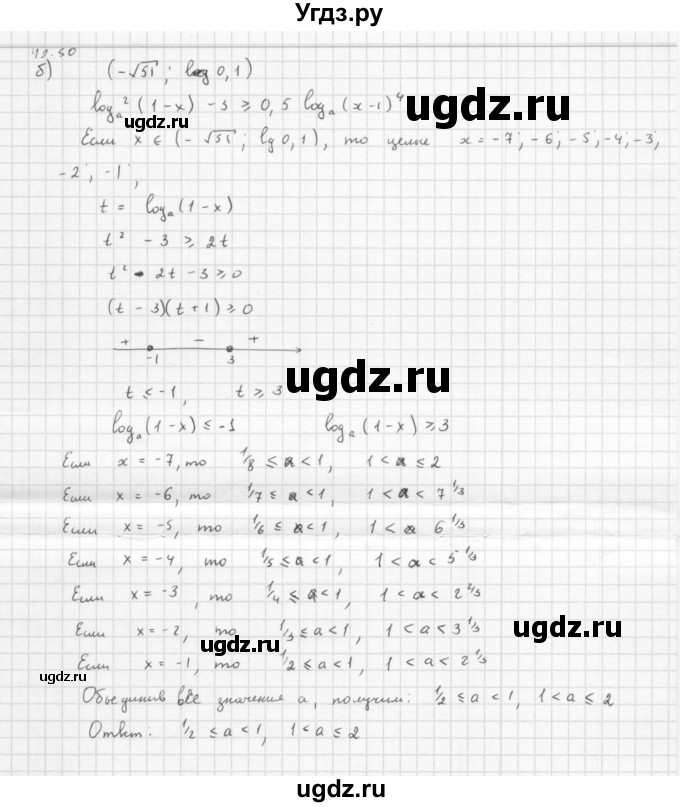 Угдз.ру
42.50
б) (-√51; lg 0,1)
logₐ²(1-x) - 3 ≥ 0,5 logₐ(x-1)⁴
ugdz.ru
ugdz.ru
Если x ∈ (-√51; lg 0,1), то целые x = -7; -6; -5; -4; -3;
-2; -1;
t = logₐ(1-x)
t² - 3 ≥ 2t
t² - 2t - 3 ≥ 0
(t - 3)(t + 1) ≥ 0
+ - +
-1 3
ugdz.ru
t ≤ -1, t ≥ 3
logₐ(1-x) ≤ -1 logₐ(1-x) ≥ 3
Если x = -7, то 1/8 ≤ a < 1, 1 < a ≤ 2
Если x = -6, то 1/7 ≤ a < 1, 1 < a < 7^1/3
Если x = -5, то 1/6 ≤ a < 1, 1 < a 6^1/3
Если x = -4, то 1/5 ≤ a < 1, 1 < a < 5^1/3
Если x = -3, то 1/4 ≤ a < 1, 1 < a < 2^2/3
Если x = -2, то 1/3 ≤ a < 1, 1 < a < 3^1/3
ugdz.ru
ugdz.ru
Если x = -1, то 1/2 ≤ a < 1, 1 < a < 2^1/3
ugdz.ru
Объединив все значения a, получим: 1/2 ≤ a < 1, 1 < a ≤ 2
Ответ: 1/2 ≤ a < 1, 1 < a ≤ 2
ugdz.ru
ugdz.ru